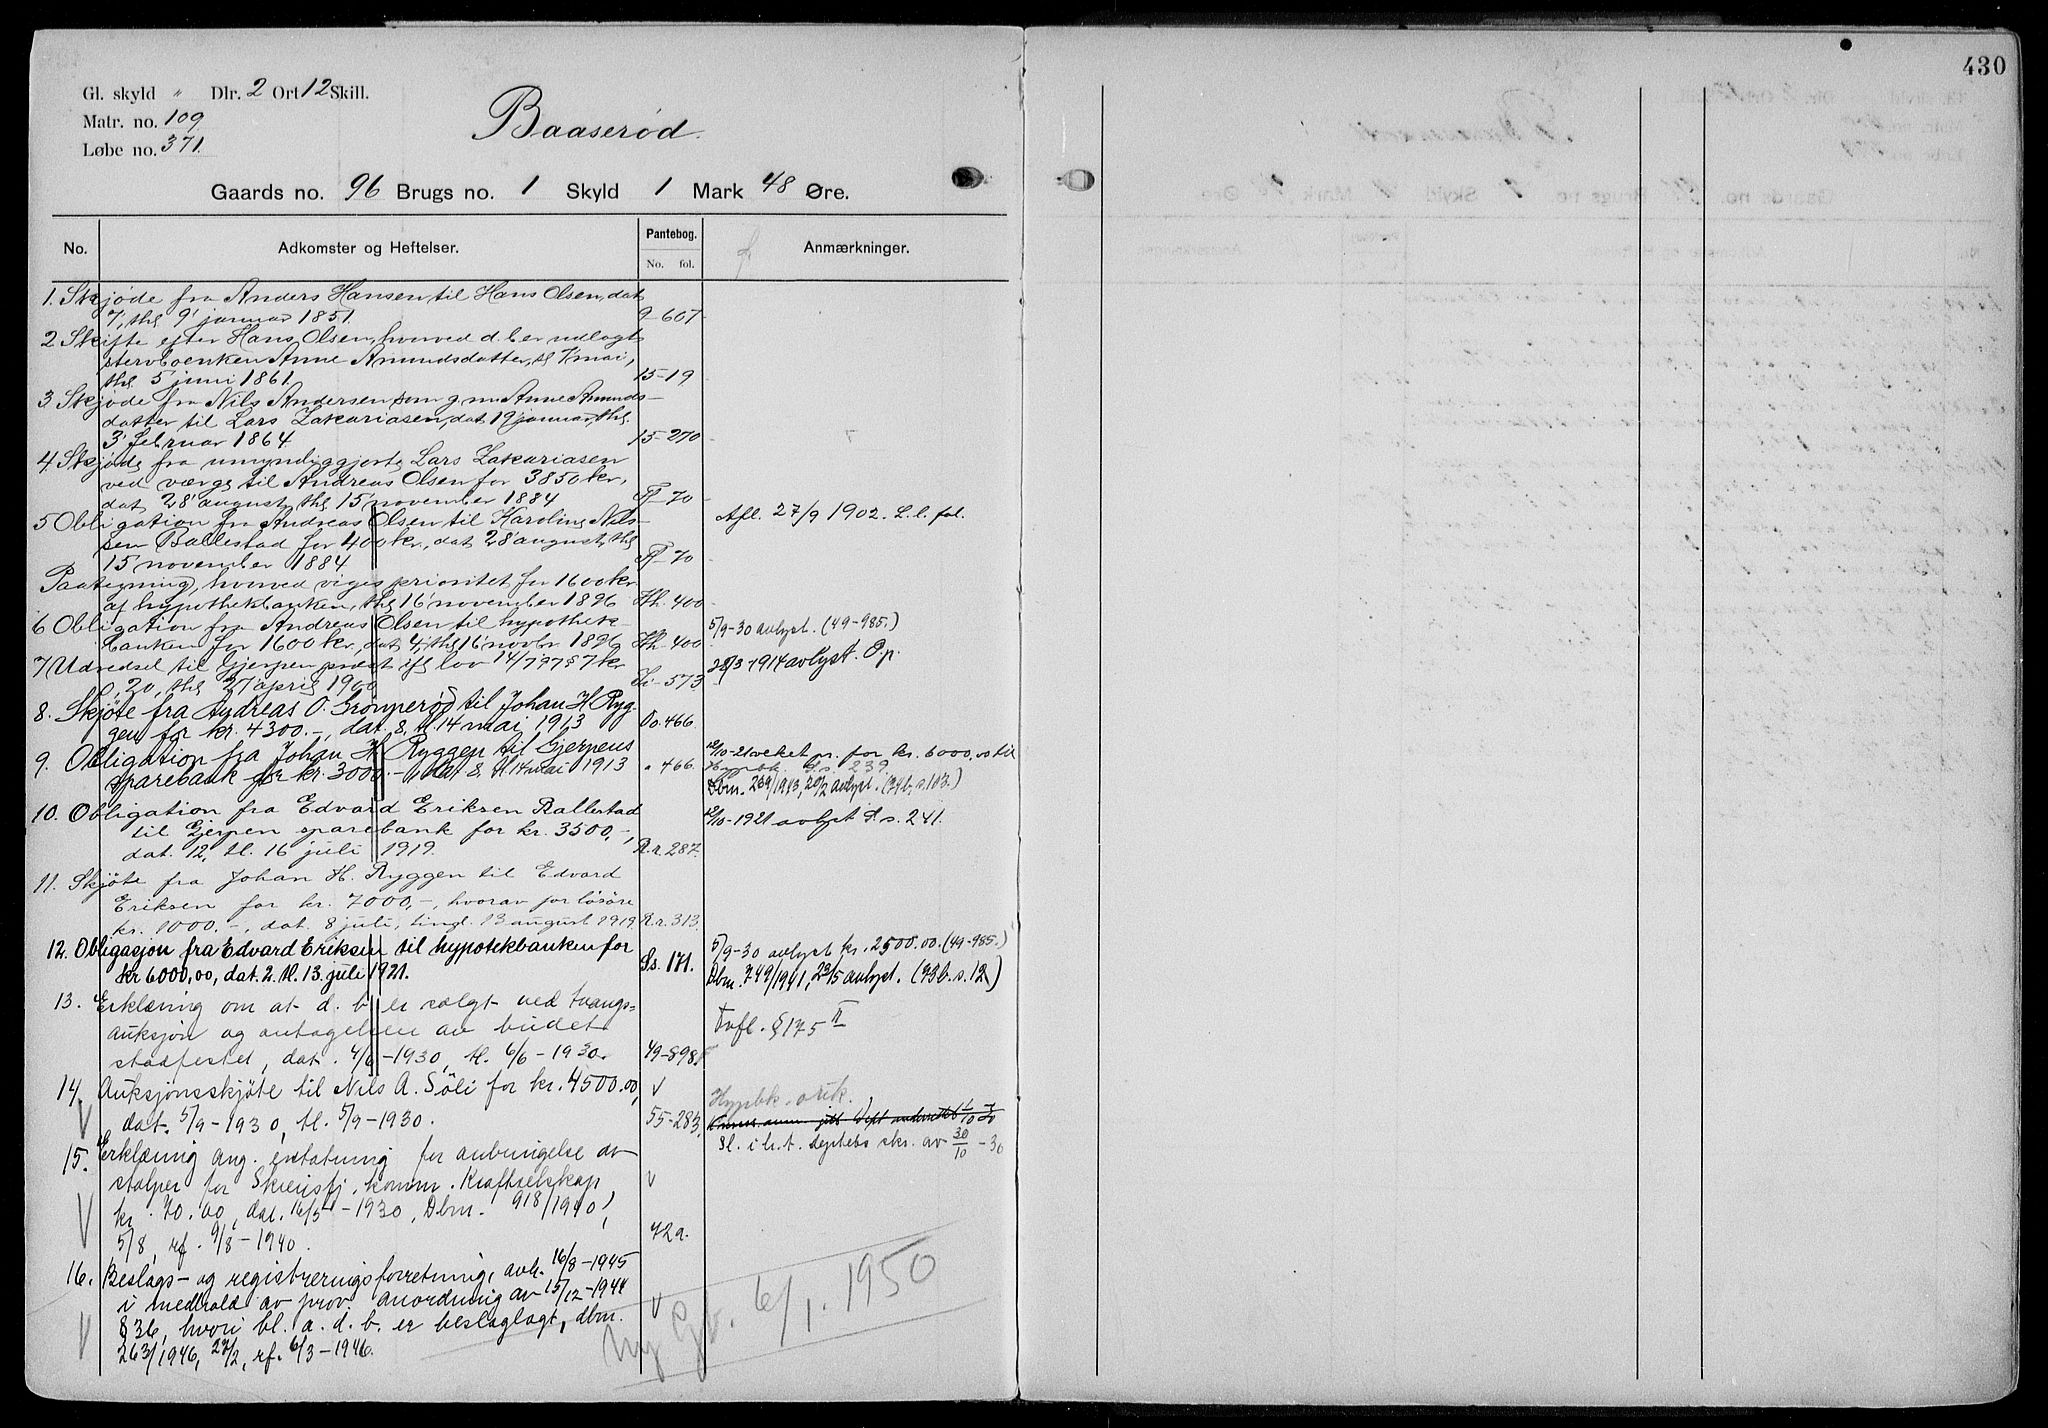 430
Gl. skyld " Dlr. 2 Ort 12 Skill.
Matr. no. 109
Løbe no. 371.
Baaserød.
Gaards no. 96 Brugs no. 1 Skyld 1 Mark 48 Øre.
No. Adkomster og Heftelser. Pantebog. Anmærkninger.
No. fol.
1. Skjøde fra Anders Hansen til Hans Olsen, dat
7', thl 9' januar 1851. 9-607
2 Skifte efter Hans Olsen, hvorved d. b. er udlagt
stervboenken Anne Amundsdatter, 7' mai,
thl. 5' juni 1861. 15-19
3 Skjøde fra Nils Andersen som g. m. Anne Amunds-
datter til Lars Zakariasen, dat 19' januar, thl.
3' februar 1864 15-270
4 Skjøde fra umyndiggjorte Lars Zakariasen
ved værge til Andreas Olsen for 3850 kr,
dat 28' august, thl 15' november 1884 70
5 Obligation fra Andreas Olsen til Karoline Nils-
sen Ballestad for 400 kr, dat 28' august, thl
15' november 1884 70
Afl. 27/9 1902. L. l. fol.
Paategning, hvorved viges prioritet for 1600 kr
af hypothekbanken, thl 16' november 1896 Hh. 400
6 Obligation fra Andreas Olsen til hypothek-
banken for 1600 kr, dat 4', thl 16' novbr 1896 Hh-400
5/9-30 avlyst. (49-985.)
7 Udredsel til Gjerpen præst ifl lov 14/7 97 § 7 kr
0,20, thl 27' april 1900 573
28/3 1914 avlyst. P.p.
8. Skjöte fra Andreas O. Grömperöd til Johan H. Ryg-
gen for kr. 4300.-, dat. 8, tl. 14 mai 1913 Oo. 466.
9. Obligation fra Johan H. Ryggen til Gjerpens
sparebank for kr. 3000.-, dat 8. tl. 14 mai 1913 " 466.
12/10-21 veket pr. for kr. 6000,00 til
Hypbk S.s. 239.
Dbm. 269/1943, 20/2 avlyst. (74b. s. 103.)
10. Obligation fra Edvard Eriksen Ballestad
til Gjerpen sparebank for kr. 3500,-,
dat. 12, tl. 16 juli 1919. R.r. 287.
12/10-1921 avlyst S.s. 241.
11. Skjöte fra Johan H. Ryggen til Edvard
Eriksen for kr. 7000,-, hvorav for lösöre
kr. 1000.-, dat. 8 juli, tingl. 13 august 1919 R.r. 313.
12. Obligasjon fra Edvard Eriksen til hypotekbanken for
kr 6000,00, dat. 2. tl. 13. juli 1921. S.s. 171.
5/9-30 avlyst kr. 2500.00. (49-985.)
Dbm. 749/1941, 23/5 avlyst. (73b. s. 12)
13. Erklæring om at d. b. er solgt ved tvangs=
auksjon og antagelsen av budet
stadfestet, dat. 4/6-1930, tl. 6/6-1930. 49-898
Tvfl. § 175 II
14. Auksjonsskjöte til Nils A. Söli for kr. 4500.00,
dat. 5/9-1930, tl. 5/9-1930. 55-283.
Hypbk.
Sl. i h. t. deptets skr. av 30/10-30
15. Erklæring ang. erstatning for anbringelse av
stolper for Skiensfj. komm. Kraftselskap
kr. 70.00, dat. 16/5-1930, Dbm. 918/1940,
5/8, rf. 9/8-1940. 72a.
16. Beslags- og registreringsforretning, avh. 16/8-1945
i medhold av prov. anordning av 15/12-1944
§ 36, hvori bl. a. d. b. er beslaglagt, dbm.
263/1946, 27/2, rf. 6/3-1946.
Ny Gb. 6/1. 1950